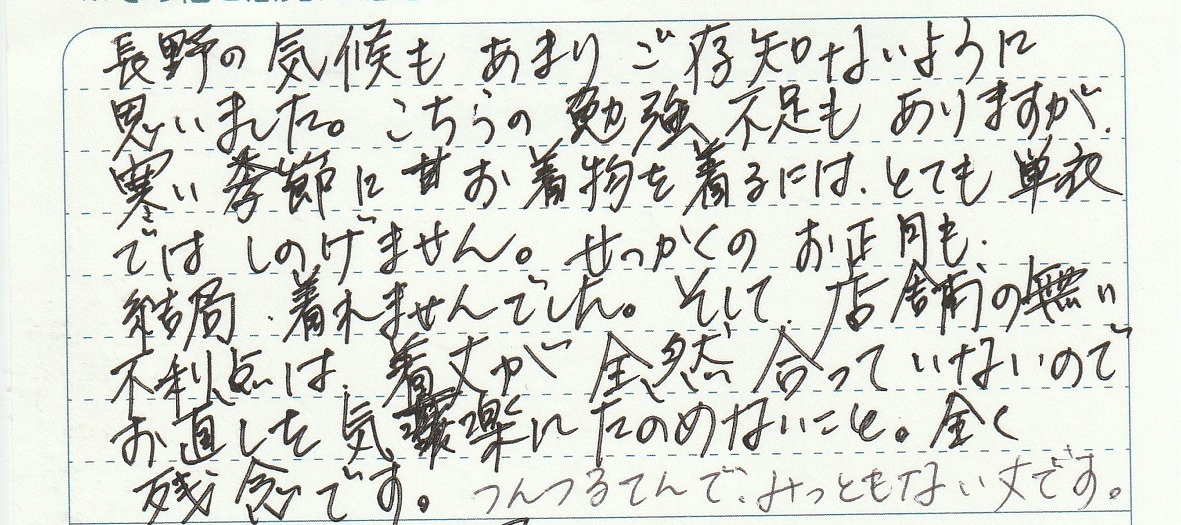 長野の気候も あまり ご存知ないように
思いました。こちらの 勉強 不足も ありますが、
寒い 季節に お着物を 着るには、とても 単衣
では しのげません。せっかくの お正月も、
結局、着れませんでした。そして、店舗の無い
不利点は、着丈が 全然 合って いないので
お直しを 気楽に たのめないこと。全く
残念です。つんつるてんで、みっともない丈です。